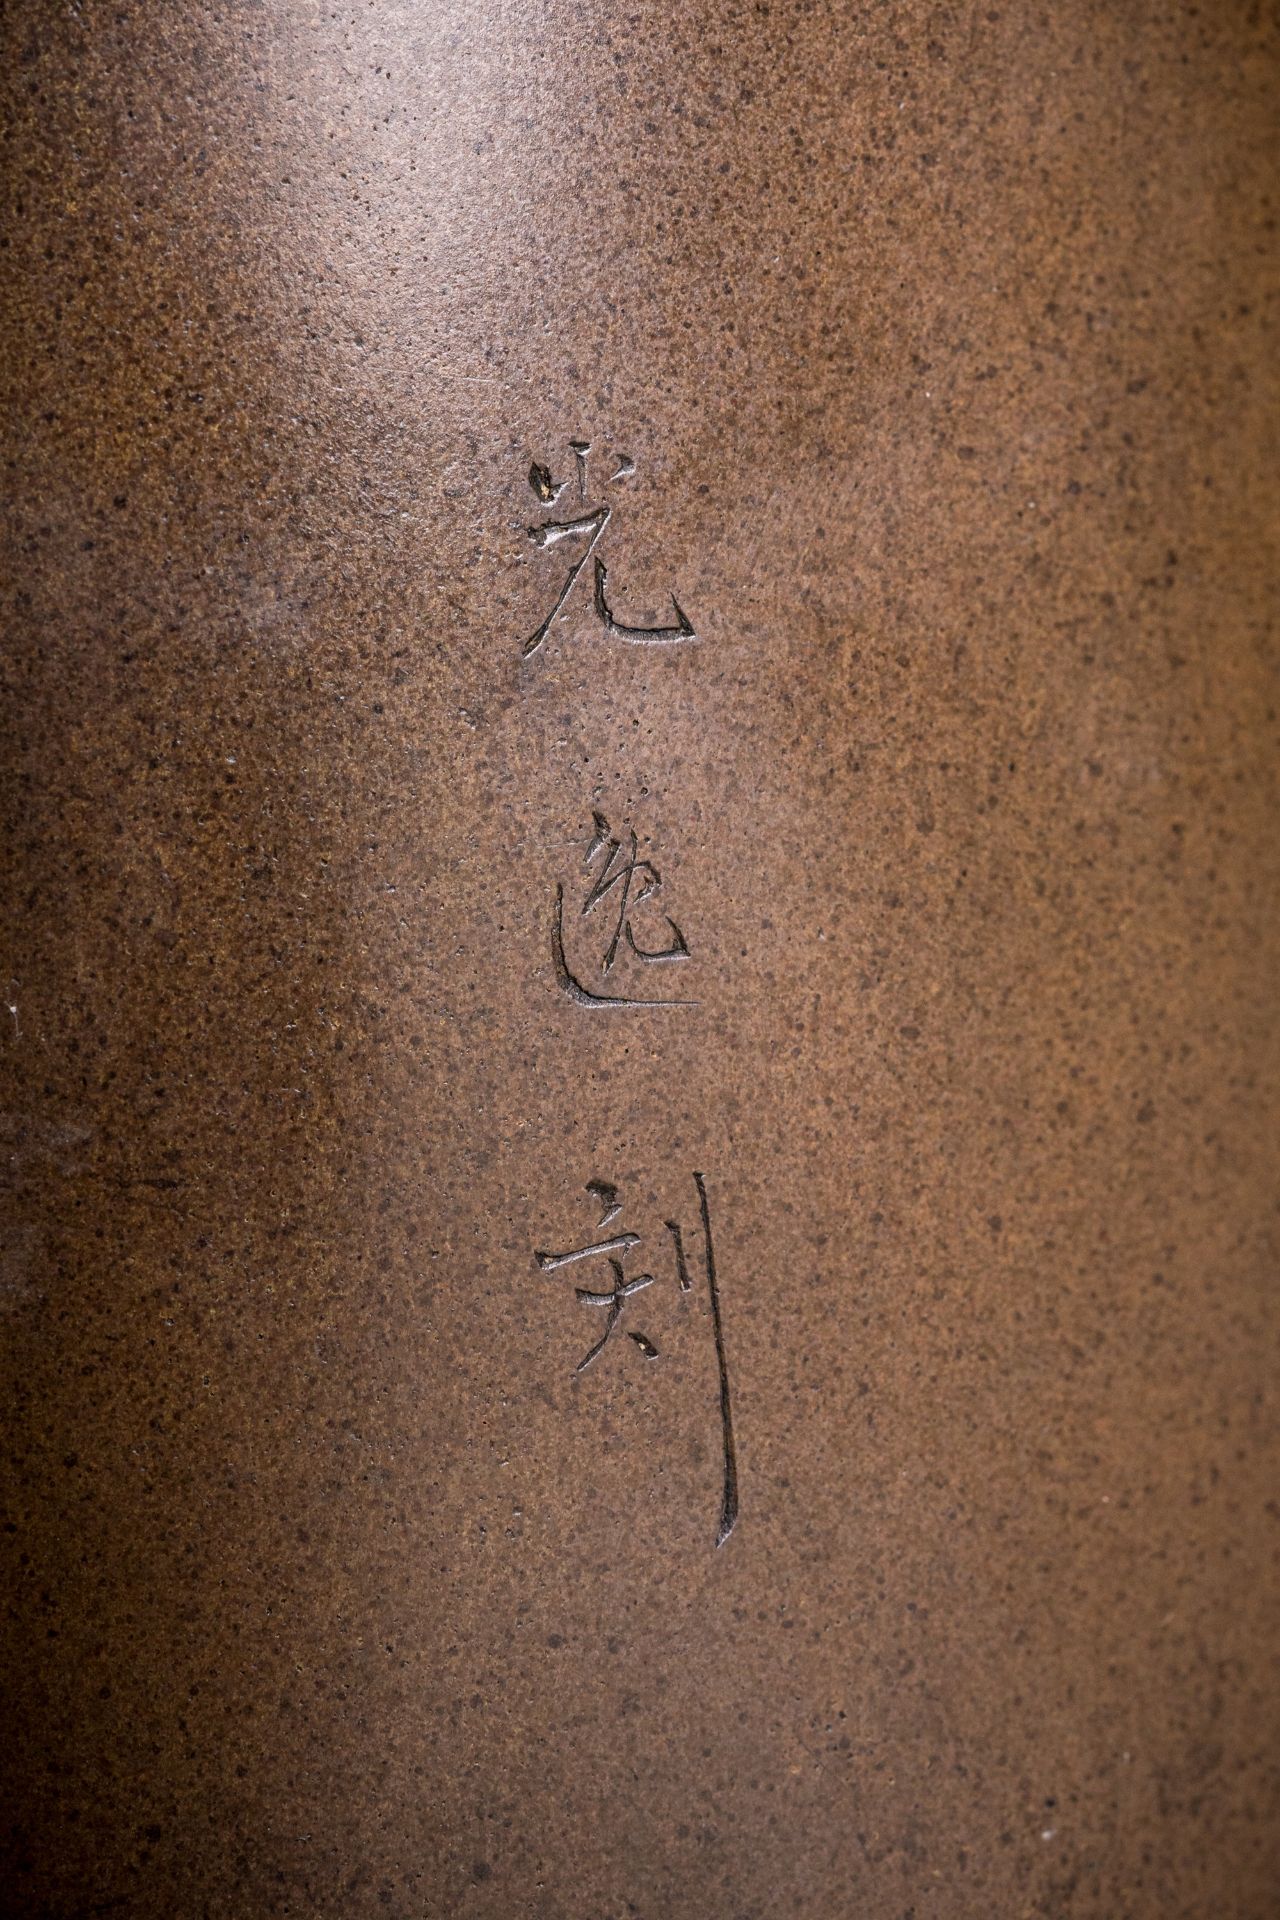 光逸刻